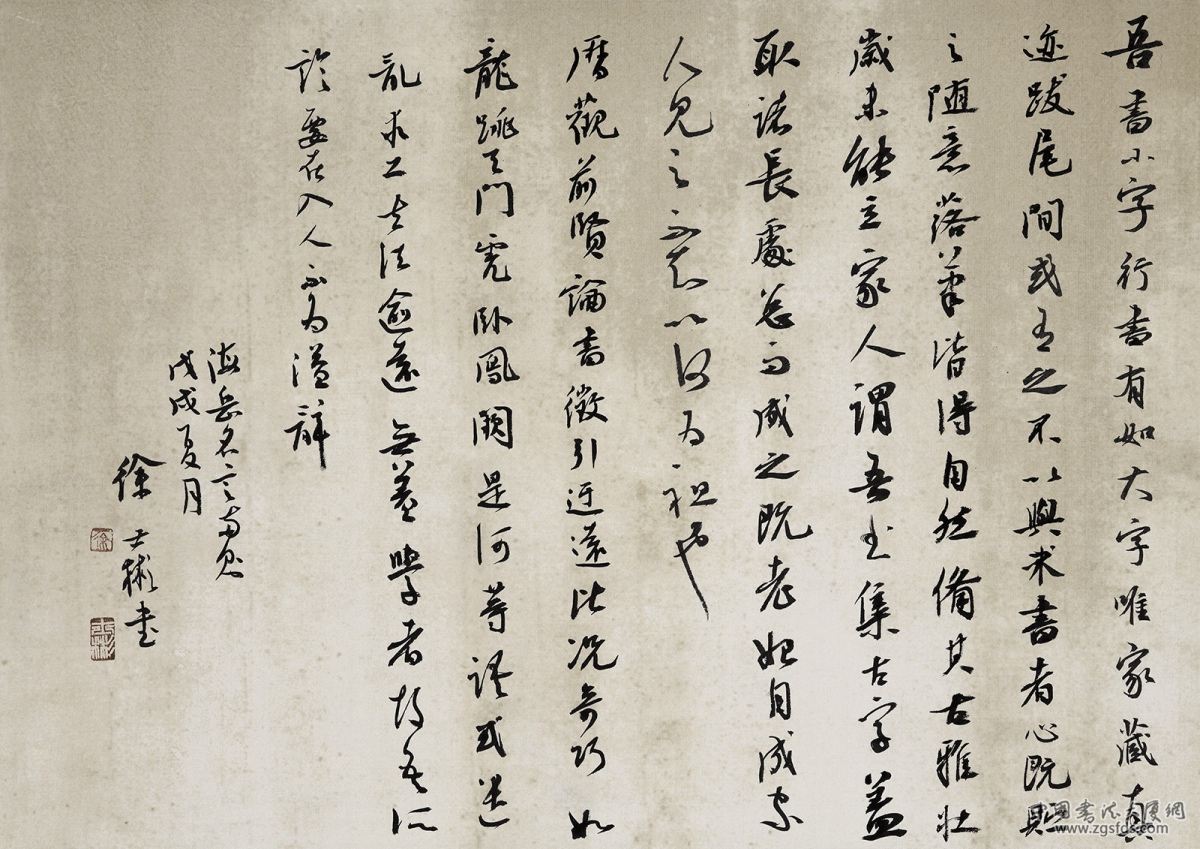 吾書小字行書有如大字唯家藏真
迹跋尾間或有之不以與求書者心既貯
之随意落筆皆得自然備其古雅壯
歲未能立家人謂吾書集古字蓋
取諸長處總而成之既老始自成家
人見之不知以何為祖也
曆觀前賢論書徵引迂遠比況奇巧如
龍跳天門虎臥鳳闕是何等語或遣
辭求工去法逾遠無益學者故吾所
論要在入人不為溢辭
海岳名言兩則
戊戌夏月
徐士彬書
徐
士彬
中國書法大廈網
www.zgsfds.com